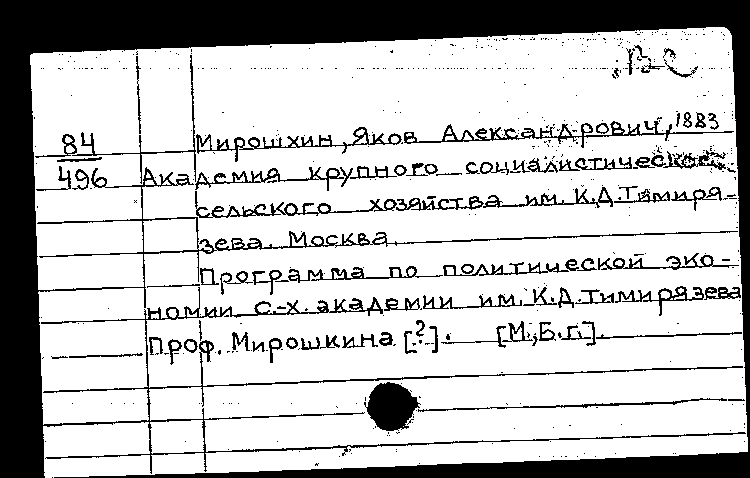 ВС
84 Мирошхин, Яков Александрович, 1883
496 Академия крупного социалистического
сельского хозяйства им. К.Д.Тимиря-
зева. Москва.
Программа по политической эко-
номии с.-х. академии им. К.Д.Тимирязева
Проф. Мирошкина [?]. [М., Б.г.].